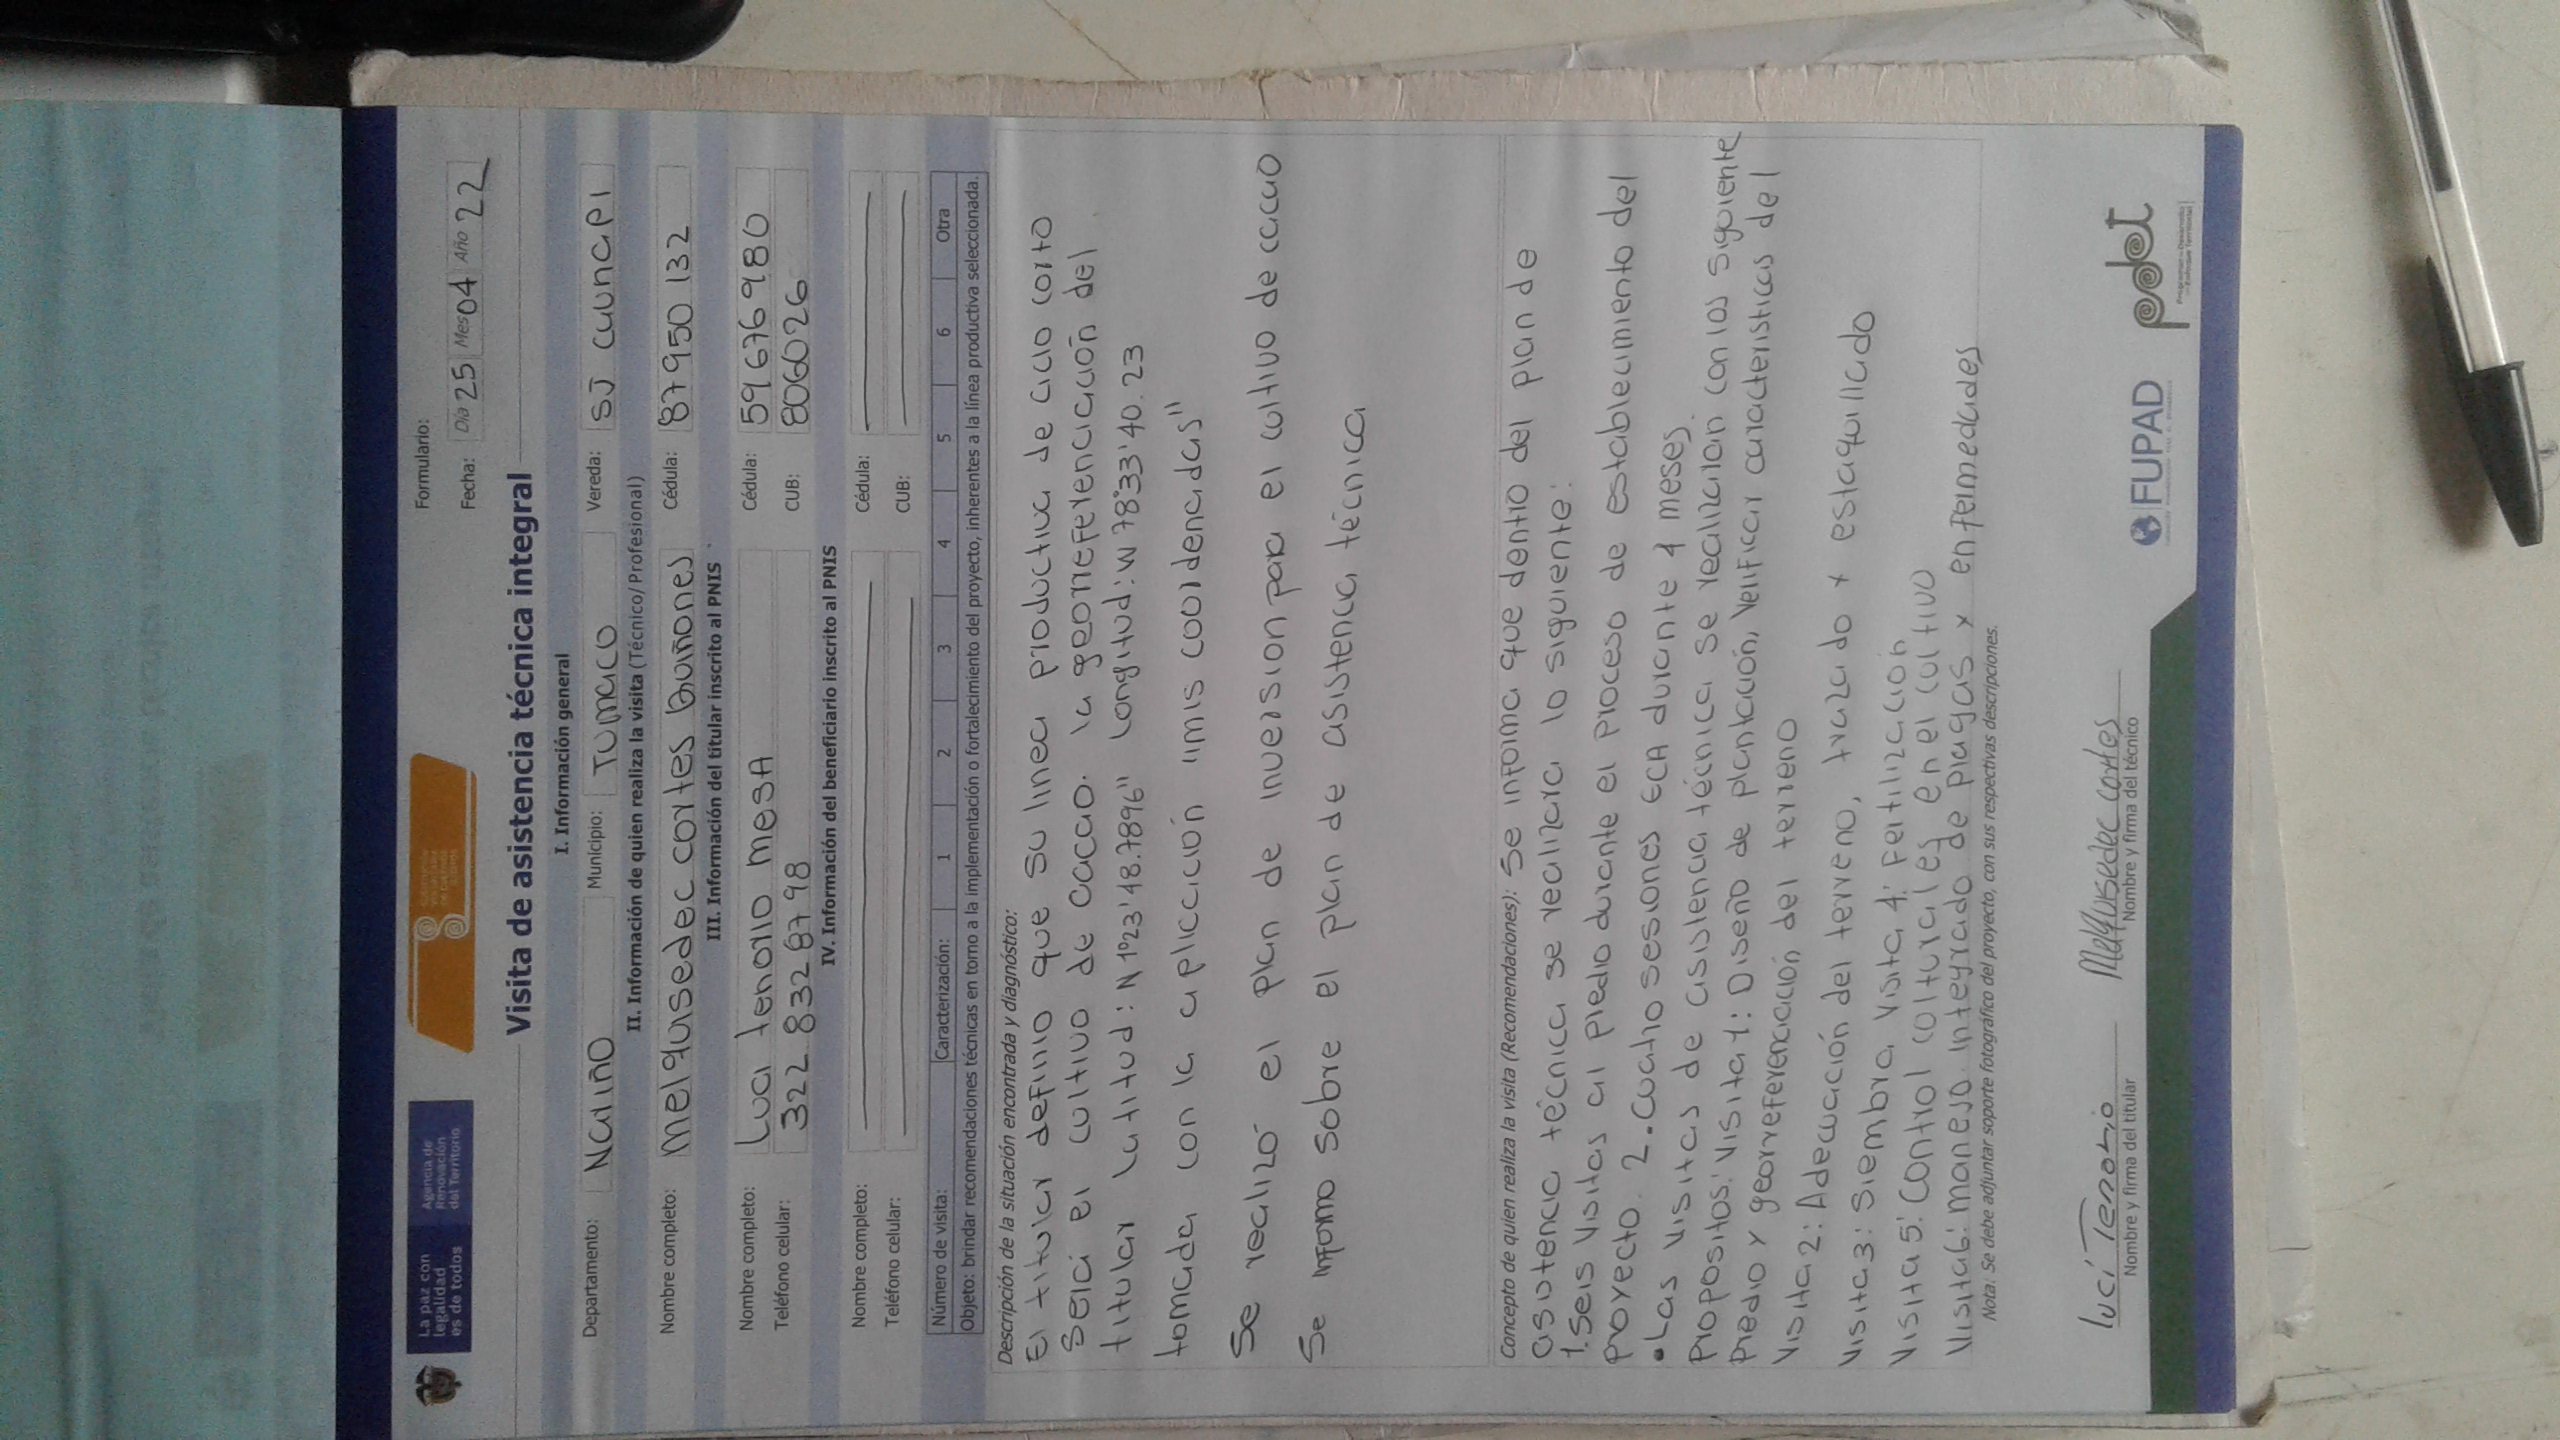 La paz con
legalidad
es de todos
Agencia de
Renovación
del Territorio
Formulario:
Fecha: Día 25 Mes 04 Año 22
Visita de asistencia técnica integral
I. Información general
Departamento: Nariño Municipio: Tumaco Vereda: SJ cuunapi
II. Información de quien realiza la visita (Técnico/ Profesional)
Nombre completo: Melquisedec cortes Quiñones Cédula: 87950132
III. Información del titular inscrito al PNIS
Nombre completo: Luci tenorio mesA Cédula: 59676980
Teléfono celular: 322 832 8798 CUB: 8060026
IV. Información del beneficiario inscrito al PNIS
Nombre completo: Cédula:
Teléfono celular: CUB:
Número de visita: Caracterización: 1 2 3 4 5 6 Otra
Objeto: brindar recomendaciones técnicas en torno a la implementación o fortalecimiento del proyecto, inherentes a la línea productiva seleccionada.
Descripción de la situación encontrada y diagnóstico:
El titular definio que su linea productiva de ciclo corto
Sera el cultivo de cacao. la georreferenciación del
titular Latitud: N 1°23'48.7896" Longitud: W 78°33'40.23
tomada con la aplicación "mis coordenadas"
Se realizó el plan de inversion para el cultivo de cacao
Se informo sobre el plan de asistencia técnica
Concepto de quien realiza la visita (Recomendaciones): Se informa que dentro del plan de
asistencia técnica se realizara lo siguiente:
1. Seis visitas al predio durante el proceso de establecimiento del
proyecto. 2. Cuatro sesiones ECA durante 4 meses.
• Las visitas de asistencia técnica se realizaran con los siguiente
propositos: Visita 1: Diseño de plantación, Verificar caracteristicas del
predio y georreferenciación del terreno
Visita 2: Adecuación del terreno, trazado y estaquillado
Visita 3: Siembra, Visita 4: Fertilización
Visita 5: Control culturales en el cultivo
Visita 6: manejo integrado de plagas y enfermedades
Nota: Se debe adjuntar soporte fotográfico del proyecto, con sus respectivas descripciones.
luci Tenorio Melquisedec cortes
Nombre y firma del titular Nombre y firma del técnico
FUPAD
pdet